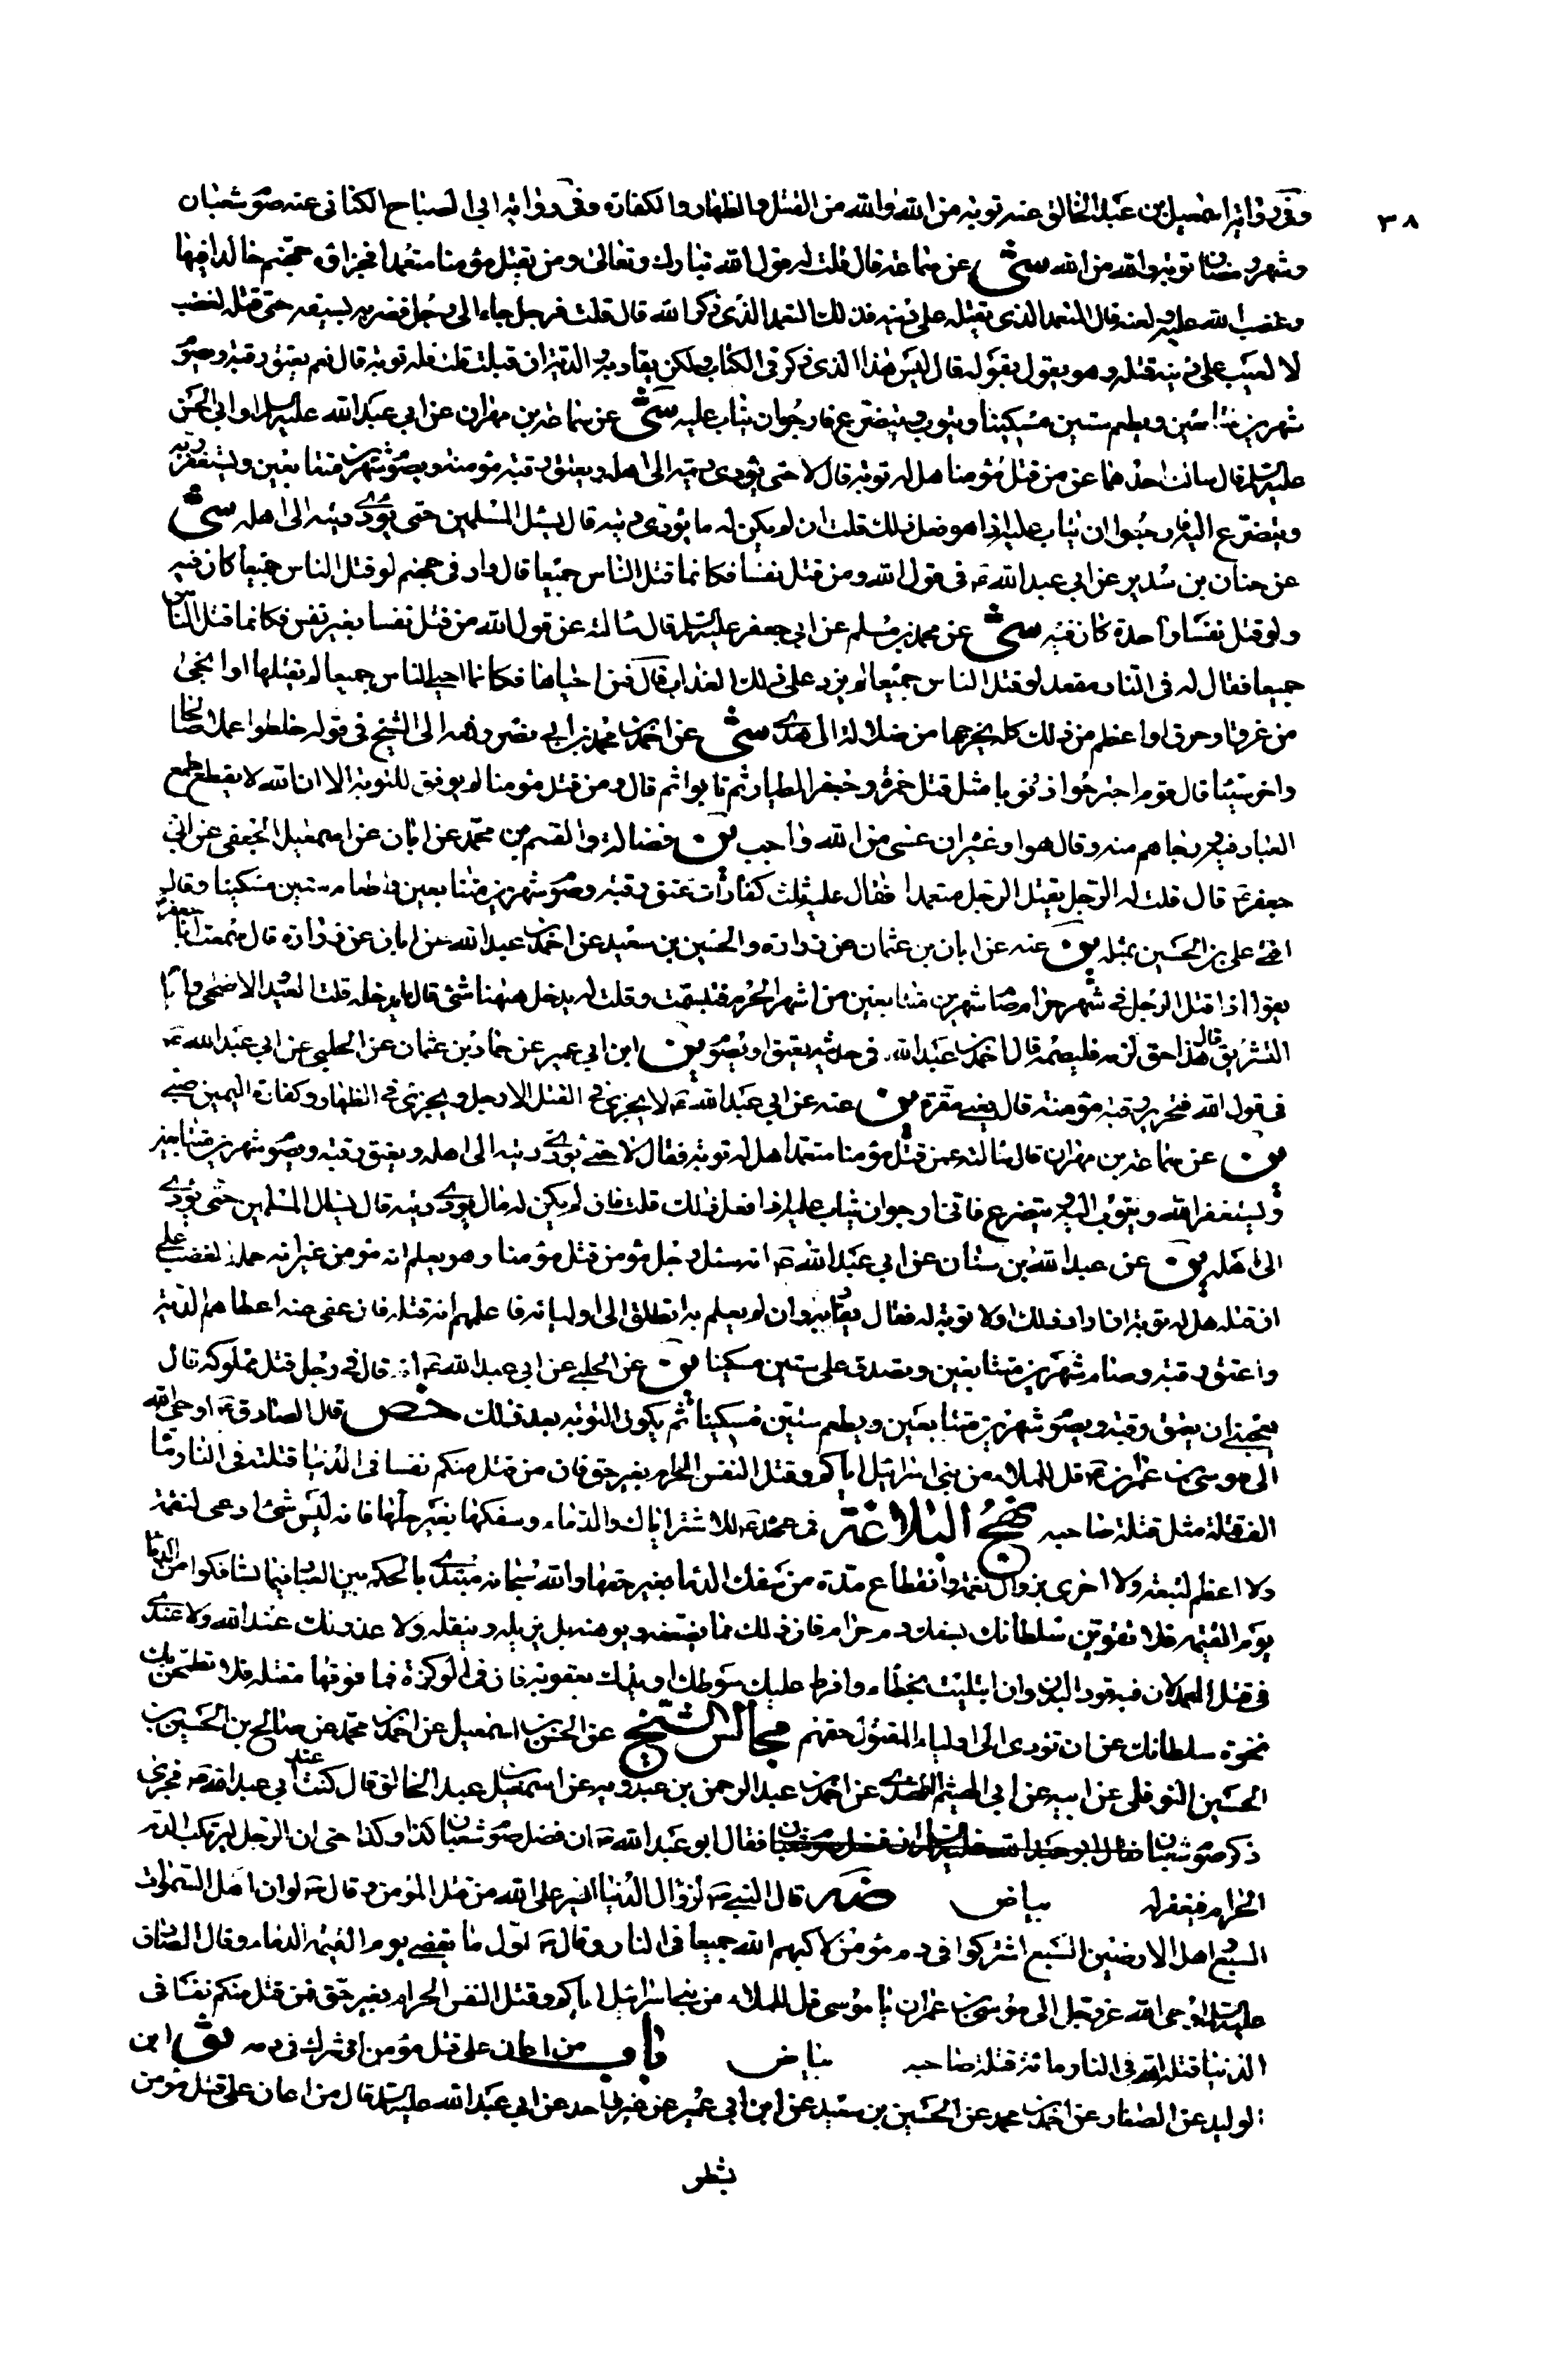 ٣٨
وفى رواية اسمعيل بن عبد الخالق عنه توبة من الله والله من القتل والظهار والكفارة وفى رواية ابى الصباح الكنانى عنه صوم شعبان
وشهر رمضان توبة والله من الله شى عن سماعة قال قلت له قول الله تبارك وتعالى ومن يقتل مؤمنا متعمدا فجزاؤه جهنم خالدا فيها
وغضب الله عليه ولعنه قال المتعمد الذى يقتله على دينه فذلك التعمد الذى ذكر الله قال قلت فرجل جاء الى رجل فضربه بسيفه حتى قتله لغضب
لا لعيب على دينه قتله وهو يقول بقوله قال ليس هذا الذى ذكر فى الكتاب ولكن يقاد به والدية ان قبلت قلت فله توبة قال نعم يعتق رقبة ويصوم
شهرين متتابعين ويطعم ستين مسكينا ويتوب ويتضرع فارجو ان يتاب عليه شى عن سماعة بن مهران عن ابى عبد الله عليه السلم او ابى الحسن
عليه السلم قال سالت احدهما عن من قتل مؤمنا هل له توبة قال لا حتى يؤدى ديته الى اهله ويعتق رقبة مؤمنة ويصوم شهرين متتابعين ويستغفر ربه
ويتضرع اليه فارجوا ان يتاب عليه اذا هو فعل ذلك قلت ان لم يكن له ما يؤدى ديته قال يسئل المسلمين حتى يؤدى ديته الى اهله شى
عن حنان بن سدير عن ابى عبد الله ع فى قول الله ومن قتل نفسا فكانما قتل الناس جميعا قال واد فى جهنم لو قتل الناس جميعا كان فيه
ولو قتل نفسا واحدة كان فيه شى عن محمد بن مسلم عن ابى جعفر عليه السلم قال سالته عن قول الله من قتل نفسا بغير نفس فكانما قتل الناس
جميعا فقال له فى النار مقعد لو قتل الناس جميعا لم يزد على ذلك العذاب قال فمن احياها فكانما احيى الناس جميعا لم يقتلها او انجى
من غرق او حرق او اعظم من ذلك كله يخرجها من ضلالة الى هدى شى عن احمد بن محمد بن ابى نصر رفعه الى الشيخ فى قوله خلطوا عملا صالحا
واخر سيئا قال قوم اجترحوا ذنوبا مثل قتل حمزة وجعفر الطيار ثم تابوا ثم قال ومن قتل مؤمنا لم يوفق للتوبة الا ان الله لا يقطع طمع
العباد فيه ورجاهم منه وقال هو او غيره ان عسى من الله واجب ين فضالة والقسم بن محمد عن ابان عن اسمعيل الجعفى عن ابى
جعفر ع قال قلت له الرجل يقتل الرجل متعمدا فقال عليه ثلث كفارات عتق رقبة وصوم شهرين متتابعين واطعام ستين مسكينا وقال
افتى على بن الحسين بمثله ين عنه عن ابان بن عثمان عن زرارة والحسين بن سعيد عن احمد بن عبد الله عن ابان عن زرارة قال سمعت ابا جعفر ع
يقول اذا قتل الرجل فى شهر حرام صام شهرين متتابعين من اشهر الحرم فتبسمت وقلت له يدخل ههنا شئ قال ما يدخله قلت العيد الاضحى وايام
التشريق قال هذا حق لزمه فليصمه قال احمد بن عبد الله فى حديثه يعتق او يصوم ين ابن ابى عمير عن حماد بن عثمان عن الحلبى عن ابى عبد الله ع
فى قول الله فتحرير رقبة مؤمنة قال يعنى مقرة ين عنه عن ابى عبد الله ع لا يجزى فى القتل الا رجل ويجزى فى الظهار وكفارة اليمين صبى
ين عن سماعة بن مهران قال سالته عمن قتل مؤمنا متعمدا هل له توبة فقال لا حتى يؤدى ديته الى اهله ويعتق رقبة ويصوم شهرين متتابعين
ويستغفر الله ويتوب اليه ويتضرع فانى ارجو ان يتاب عليه اذا فعل ذلك قلت فان لم يكن له مال يؤدى ديته قال يسئل المسلمين حتى يؤدى
الى اهله ين عن عبد الله بن سنان عن ابى عبد الله ع انه سئل رجل مؤمن قتل مؤمنا وهو يعلم انه مؤمن غير انه حمله الغضب على
ان قتله هل له توبة اذا اراد ذلك او لا توبة له فقال يقاد به وان لم يعلم به انطلق الى اوليائه فاعلمهم انه قتله فان عفى عنه اعطاهم الدية
واعتق رقبة وصام شهرين متتابعين وتصدق على ستين مسكينا ين عن الحلبى عن ابى عبد الله ع انه قال فى رجل قتل مملوكه قال
يعجبنى ان يعتق رقبة ويصوم شهرين متتابعين ويطعم ستين مسكينا ثم يكون التوبة بعد ذلك ختص قال الصادق ع اوحى الله
الى موسى بن عمران ع قل للملاء من بنى اسرائيل اياكم وقتل النفس الحرام بغير حق فان من قتل منكم نفسا فى الدنيا قتلته فى النار مائة
الف قتلة مثل قتلة صاحبه نهج البلاغة فى عهده ع للاشتر اياك والدماء وسفكها بغير حلها فانه ليس شئ ادعى لنقمة
ولا اعظم لتبعة ولا احرى بزوال نعمة وانقطاع مدة من سفك الدماء بغير حقها والله سبحانه مبتدى بالحكم بين العباد فيما تسافكوا من الدماء
يوم القيمة فلا تقوين سلطانك بسفك دم حرام فان ذلك مما يضعفه ويوهنه بل يزيله وينقله ولا عذر لك عند الله ولا عندى
فى قتل العمد لان فيه قود البدن وان ابتليت بخطاء وافرط عليك سوطك او يدك بعقوبة فان فى الوكزة فما فوقها مقتلة فلا تطمحن بك
نخوة سلطانك عن ان تؤدى الى اولياء المقتول حقهم مجالس الشيخ عن الحسن بن اسمعيل عن احمد بن محمد عن صالح بن الحسين بن
الحسين النوفلى عن ابيه عن ابى الهيثم النهدى عن احمد بن عبد الرحمن بن عبدويه عن اسمعيل بن عبد الخالق قال كنت عند ابى عبد الله ع فجرى
ذكر صوم شعبان فقال ابو عبد الله ع ان فضل صوم شعبان كذا وكذا حتى ان الرجل ليرتكب الدم
الحرام فيغفر له بياض ضه قال النبى ص لزوال الدنيا ايسر على الله من قتل المؤمن وقال ع لو ان اهل السموات
السبع واهل الارضين السبع اشتركوا فى دم مؤمن لاكبهم الله جميعا فى النار وقال ع اول ما يقضى يوم القيمة الدماء وقال الصادق
عليه السلم اوحى الله عز وجل الى موسى بن عمران يا موسى قل للملاء من بنى اسرائيل اياكم وقتل النفس الحرام بغير حق فمن قتل منكم نفسا فى
الدنيا قتله الله فى النار مائة قتلة صاحبه بياض باب من اعان على قتل مؤمن او شرك فى دمه ثو ابن
الوليد عن الصفار عن احمد بن محمد عن الحسين بن سعيد عن ابن ابى عمير عن غير واحد عن ابى عبد الله عليه السلم قال من اعان على قتل مؤمن
بشطر